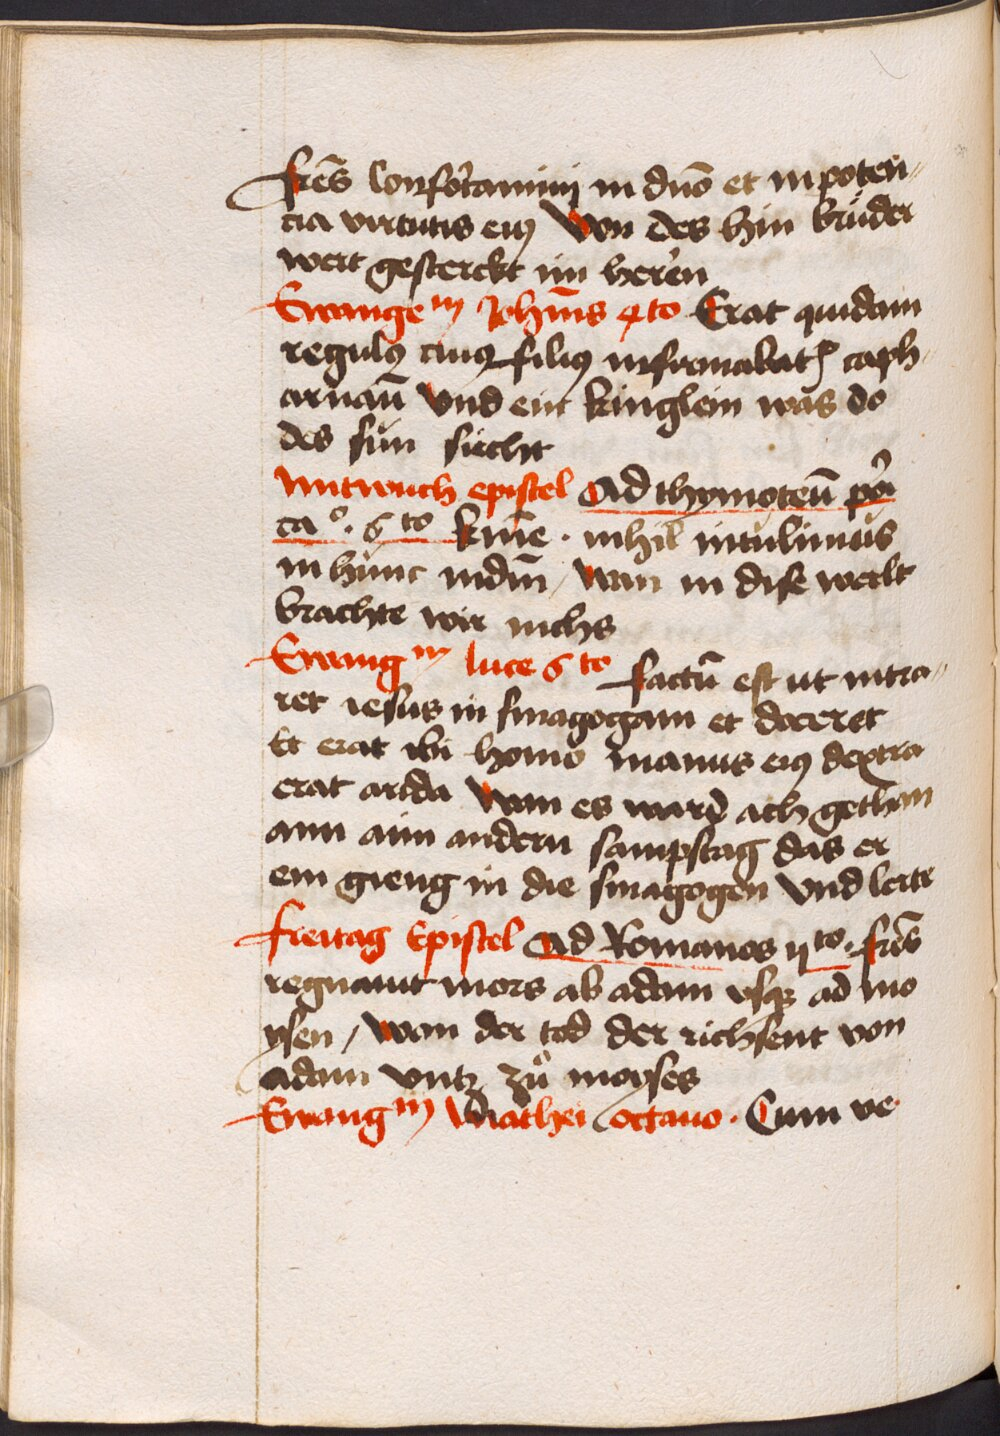 frēs Confortamini in dnō et in poten-
cia virtutis eiꝯ Von des hin brüder
wert gesterckt im heren
Ewange m Johīnis 4to Erat quidam
regulꝯ cuiꝯ filiꝯ infirmabatr caph-
arnaū Vnd ein kinglein was do
des sun siecht
Mitwuch epistel Ad thymoteū
ca° . 6to . nihil intulimus
in hunc mdm̄ / Wan in dise werlt
brachte wir nichs
Ewang m luce 6to factū est ut intra-
ret iesus in sinagogam et doceret
Et erat ibi homo manus eiꝯ dextra
erat arida Wan es ward ach gethan
ann aim andern sampstag das er
ein gieng in die sinagogen Vnd lerte
freitag Epistel Ad Romanos . frēs
regnauit mors ab adam vsqꝫ ad mo
ysen / Wan der tod der richsent von
adam vntz zů moyses
Ewang m Mathei octauo . Cum ve